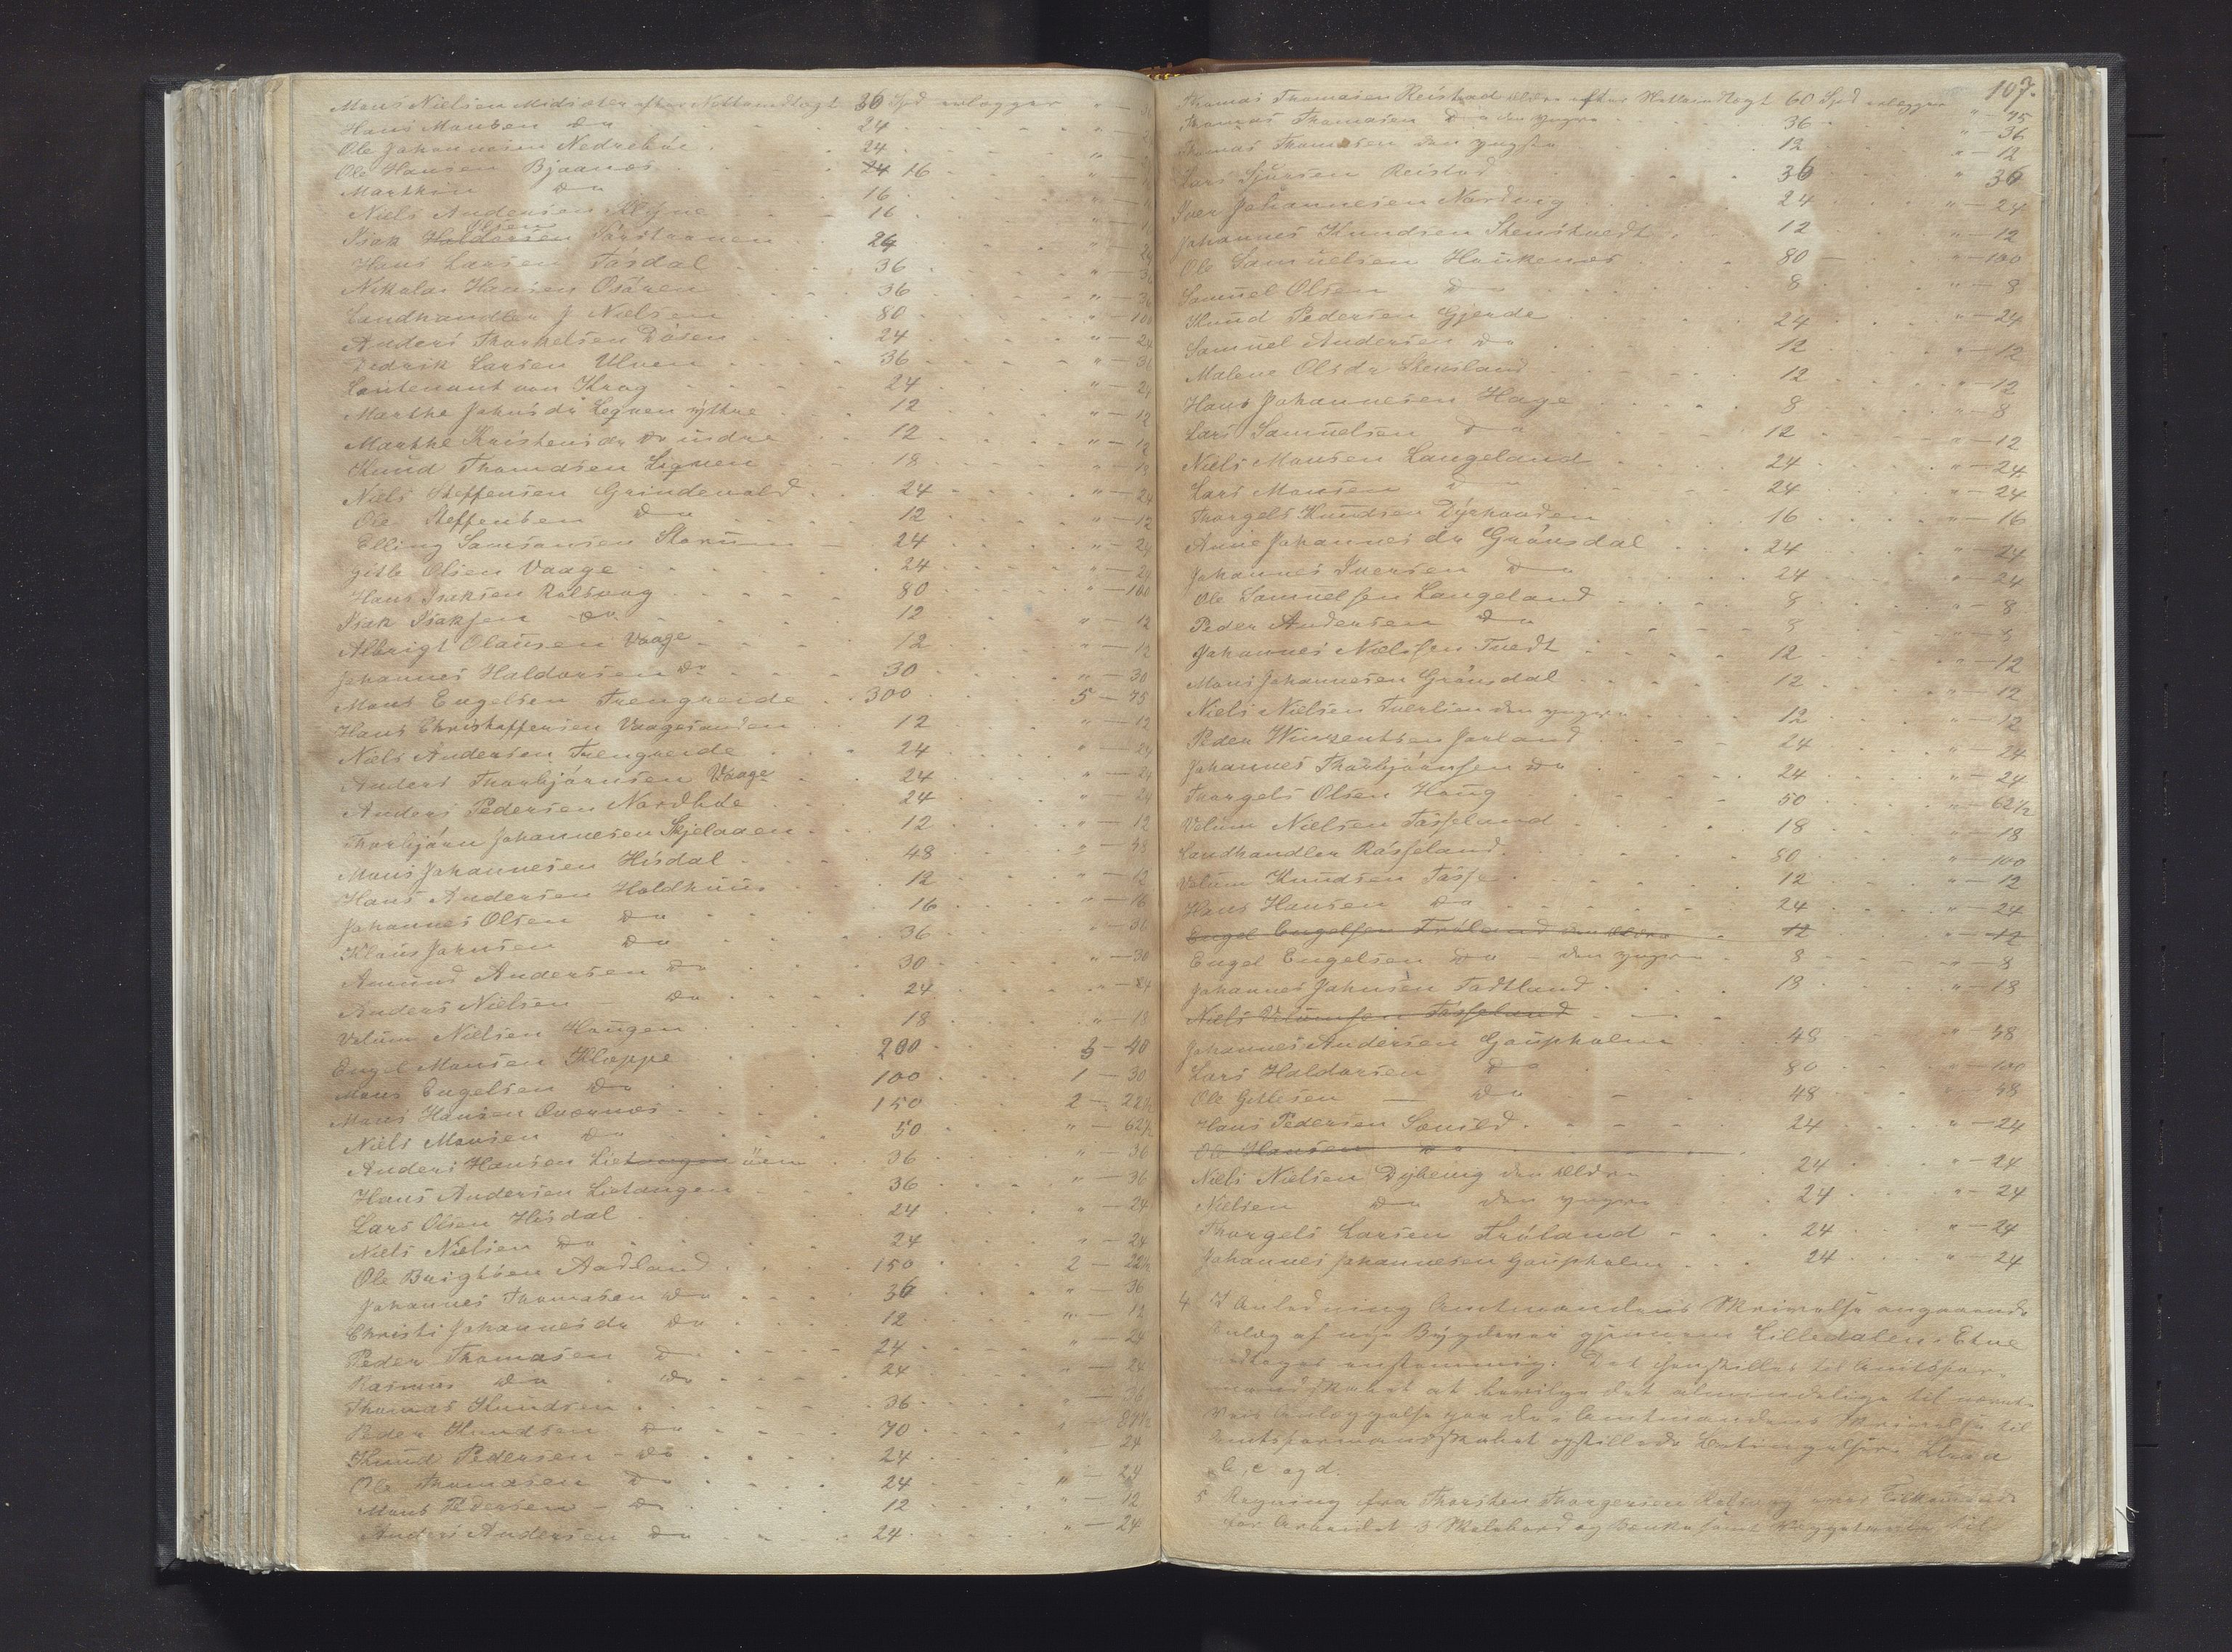 Mons Nielsen Midsæter efter Nettoindtægt 36 Spd erlægger " — 36
Hans Monsen Do 24 " — 24
Ole Johannesen Nedrebøe 24 " — 24
Ole Hansen Bjaanæs 24 16 " — 16
Marthin Do 16 " — 16
Niels Andersen 16 " — 16
Isak Haldorsen Olsen 24 " — 24
Hans Larsen Tøsdal 36 " — 36
Nikolai Hansen Osøren 36 " — 36
Landhandler J Nielsen 80 " — 100
Anders Thorkelsen Døsen 24 " — 24
Didrik Larsen Ulven 36 " — 36
Løitenant von Krog 24 " — 24
Marthe Johnsdr Legnen yttre 12 " — 12
Marthe Kristensdr Do indre 12 " — 12
Knud Thomasen Lignen 18 " — 18
Niels Steffensen Grindevold 24 " — 24
Ole Steffensen Do 12 " — 12
Elling Samsonsen Storum 24 " — 24
Gitle Olsen Vaage 24 " — 24
Hans Isaksen Rolsvaag 80 " — 100
Isak Isaksen Do 12 " — 12
Albrigt Olausen Vaage 12 " — 12
Johannes Haldorsen Do 30 " — 30
Mons Engelsen Trengereide 300 5 — 75
Hans Christoffersen Vaagesanden 12 " — 12
Niels Andersen Trengreide 24 " — 24
Anders Thorbjørnsen Vaage 24 " — 24
Anders Pedersen Nordlide 24 " — 24
Thorbjørn Johannesen Skjelaaen 12 " — 12
Mons Johannesen Hisdal 48 " — 48
Hans Andersen Holdhuus 12 " — 12
Johannes Olsen Do 16 " — 16
Klaus Johnsen Do 36 " — 36
Amund Andersen Do 30 " — 30
Anders Nielsen Do 24 " — 24
Velum Nielsen Haugen 18 " — 18
Engel Monsen Kleppe 200 3 — 40
Mons Engelsen Do 100 1 — 30
Mons Hansen Qvernæs 150 2 — 22½
Niels Monsen Do 50 " — 62½
Anders Hansen Lietangen øen 36 " — 36
Hans Andersen Lietangen 36 " — 36
Lars Olsen Hisdal 24 " — 24
Niels Nielsen Do 24 " — 24
Ole Brigtsen Aadland 150 2 — 22½
Johannes Thomasen Do 36 " — 36
Christi Johannesdr Do 12 " — 12
Peder Thomasen Do 24 " — 24
Rasmus Do Do 24 " — 24
Thomas Knudsen 36 " — 36
Peder Knudsen Do 70 " — 87½
Knud Pedersen Do 24 " — 24
Ole Thomasen Do 24 " — 24
Mons Pedersen Do 12 " — 12
Anders Andersen Do 24 " — 24
107.
Thomas Thomasen Reistad ældre efter Nettoindtægt 60 Spd erlægger " — 75
Thomas Thomasen Do den yngre 36 " — 36
Thomas Thomasen den yngste 12 " — 12
Lars Sjursen Reistad 36 " — 36
Iver Johannesen Nordvig 24 " — 24
Johannes Knudsen Stenstvedt 12 " — 12
Ole Samuelsen Haukenæs 80 " — 100
Samuel Olsen Do 8 " — 8
Knud Pedersen Gjerde 24 " — 24
Samuel Andersen Do 12 " — 12
Malene Olsdr Stensland 12 " — 12
Hans Johannesen Hage 8 " — 8
Lars Samuelsen Do 12 " — 12
Niels Monsen Langeland 24 " — 24
Lars Monsen Do 24 " — 24
Thorgels Knudsen Dyrhaaden 16 " — 16
Anne Johannesdr Grønsdal 24 " — 24
Johannes Iversen Do 24 " — 24
Ole Samuelsen Langeland 8 " — 8
Peder Andersen Do 8 " — 8
Johannes Nielssen Tvedt 12 " — 12
Mons Johannesen Grønsdal 12 " — 12
Niels Nielsen Tverlien den yngre 12 " — 12
Peder Winzentsen Jarland 24 " — 24
Johannes Thorbjørnsen Do 24 " — 24
Thorgels Olsen Haug 50 " — 62½
Velum Nielsen Tøsseland 18 " — 18
Landhandler Røsseland 80 " — 100
Velum Knudsen Tøsse 12 " — 12
Hans Hansen Do 24 " — 24
Engel Engelsen Frøland den Ældre 12 " — 12
Engel Engelsen Do den yngre 8 " — 8
Johannes Johnsen Tadtland 18 " — 18
Niels Velumsen Tøsseland
Johannes Andersen Gaupholm 48 " — 48
Lars Haldorsen Do 80 " — 100
Ole Gitlesen — Do 48 " — 48
Hans Pedersen Sævild 24 " — 24
Ole Hansen Do
Niels Nielsen Dybeng den Ældre 24 " — 24
Nielsen Do den yngre 24 " — 24
Thorgels Larsen Frøland 24 " — 24
Johannes Johannesen Gaupholm 24 " — 24
4 I Anledning Amtmandens Skrivelse angaaende
Anlæg af nye Bygdevei gjennem Lilledalen i Etne
vedtoges enstemmig: Det henstilles til Amtsfor-
mandskabet at bevilge det almindelige til nævnte
Veis Anlæggelse paa de i Amtmandens Skrivelse til
Amtsformandskabet opstillede Betingelser Litra a
b, c og d.
5 Regning fra Thorsten Thorgersen Rolsvaag
for Arbeidet 3 Skolebord og Bænke samt til